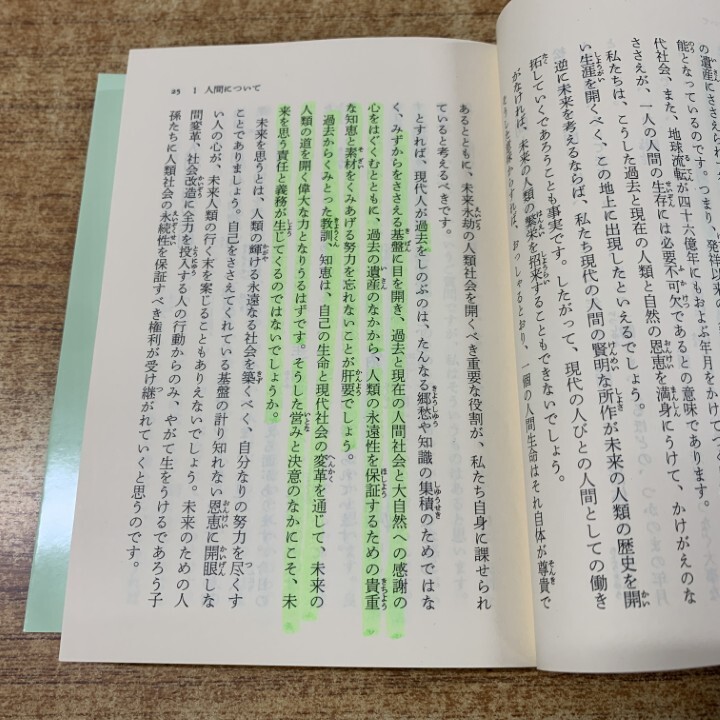 の遺産にささえられ
能となっているのです。つまり、発祥以来の
代社会、また、地球流転の四十六億年にもおよぶ年月をかけ
ささえが、一人の人間の生存には必要不可欠であるとの意味であります。
私たちは、こうした過去と現在の人類と自然の恩恵を満身にうけて、かけがえのな
い生涯を開くべく、この地上に出現したといえるでしょう。
逆に未来を考えるならば、私たち現代の人間の賢明な所作が未来の人類の歴史を開
拓していくであろうことも事実です。したがって、現代の人びとの人間としての働き
がなければ、未来の人類の繁栄を招来することもできないでしょう。
おっしゃるとおり、一個の人間生命はそれ自体が尊貴で
あるとともに、未来永劫の人類社会を開くべき重要な役割が、私たち自身に課せられ
ていると考えるべきです。
とすれば、現代人が過去をしのぶのは、たんなる郷愁や知識の集積のためではな
く、みずからをささえる基盤に目を開き、過去と現在の人間社会と大自然への感謝の
心をはぐくむとともに、過去の遺産のなかから、人類の永遠性を保証するための貴重
な知恵と素材をくみあげる努力を忘れないことが肝要でしょう。
過去からくみとった教訓、知恵は、自己の生命と現代社会の変革を通じて、未来の
人類の道を開く偉大な力となりうるはずです。そうした営みと決意のなかにこそ、未
来を思う責任と義務が生じてくるのではないでしょうか。
未来を思うとは、人類の輝ける永遠なる社会を築くべく、自分なりの努力を尽くす
ことでありましょう。自己をささえてくれている基盤の計り知れない恩恵に開眼しな
い人の心が、未来人類の行く末を案じることもありえないでしょう。未来のための人
間変革、社会改造に全力を投入する人の行動からのみ、やがて生をうけるであろう子
孫たちに人類社会の永続性を保証すべき権利が受け継がれていくと思うのです。
25 1 人間について